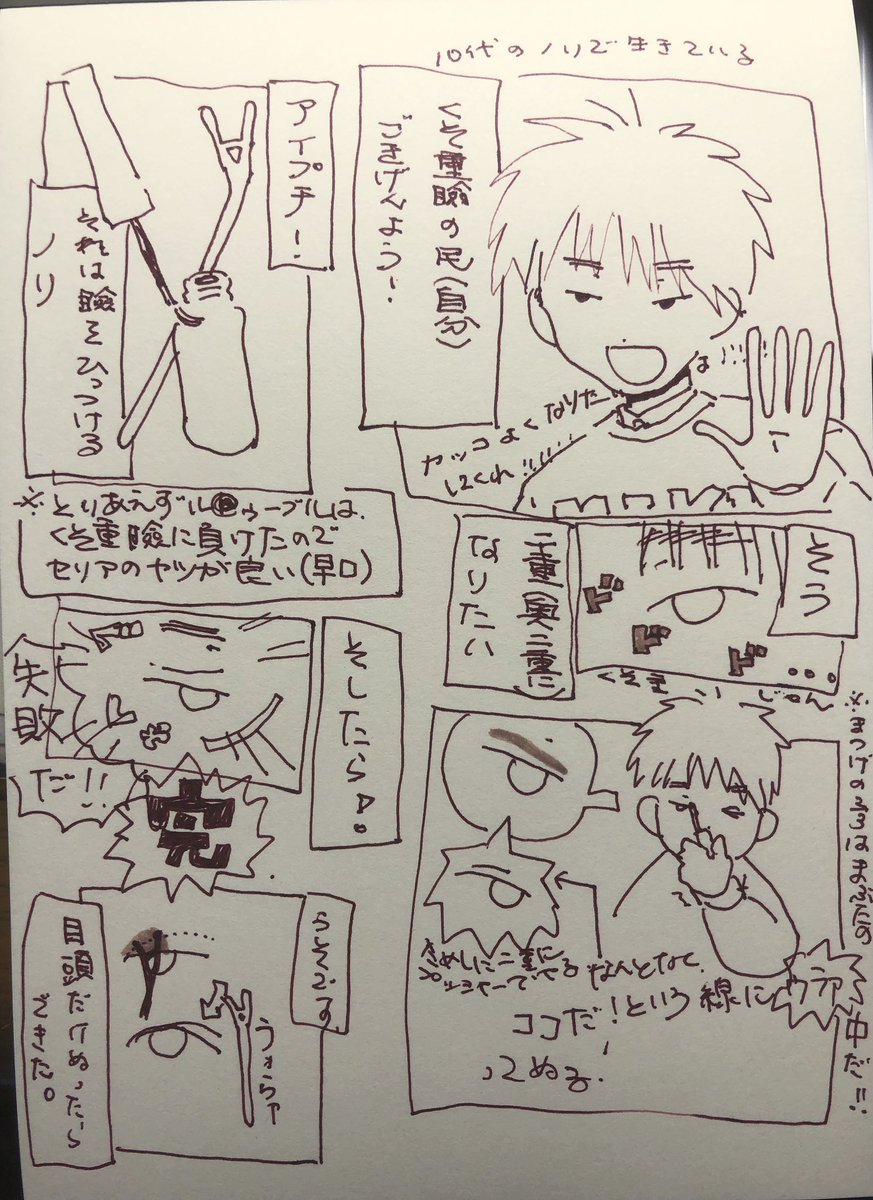 10代のノリで生きている
くそ重瞼の民(自分)
ごきげんよう!
カッコよくなりた
してくれ!!!
は…!!!
そう
ドドド…
二重(奥二重)に
なりたい
くそ重い
※まつげの字はまぶたの
中だ!!
ためしに二重に
プッシャーでやる
なんとなく、
ココだ!という線に
ウラァ
ってぬる!
アイプチ!
それは瞼をひっつける
ノリ
※とりあえずル●ゥーブルは、
くそ重瞼に負けたので
セリアのヤツが良い(早口)
そしたらァ。
失敗
だ!!
完
うそです
うぉらァ
目頭だけぬったら
できた。